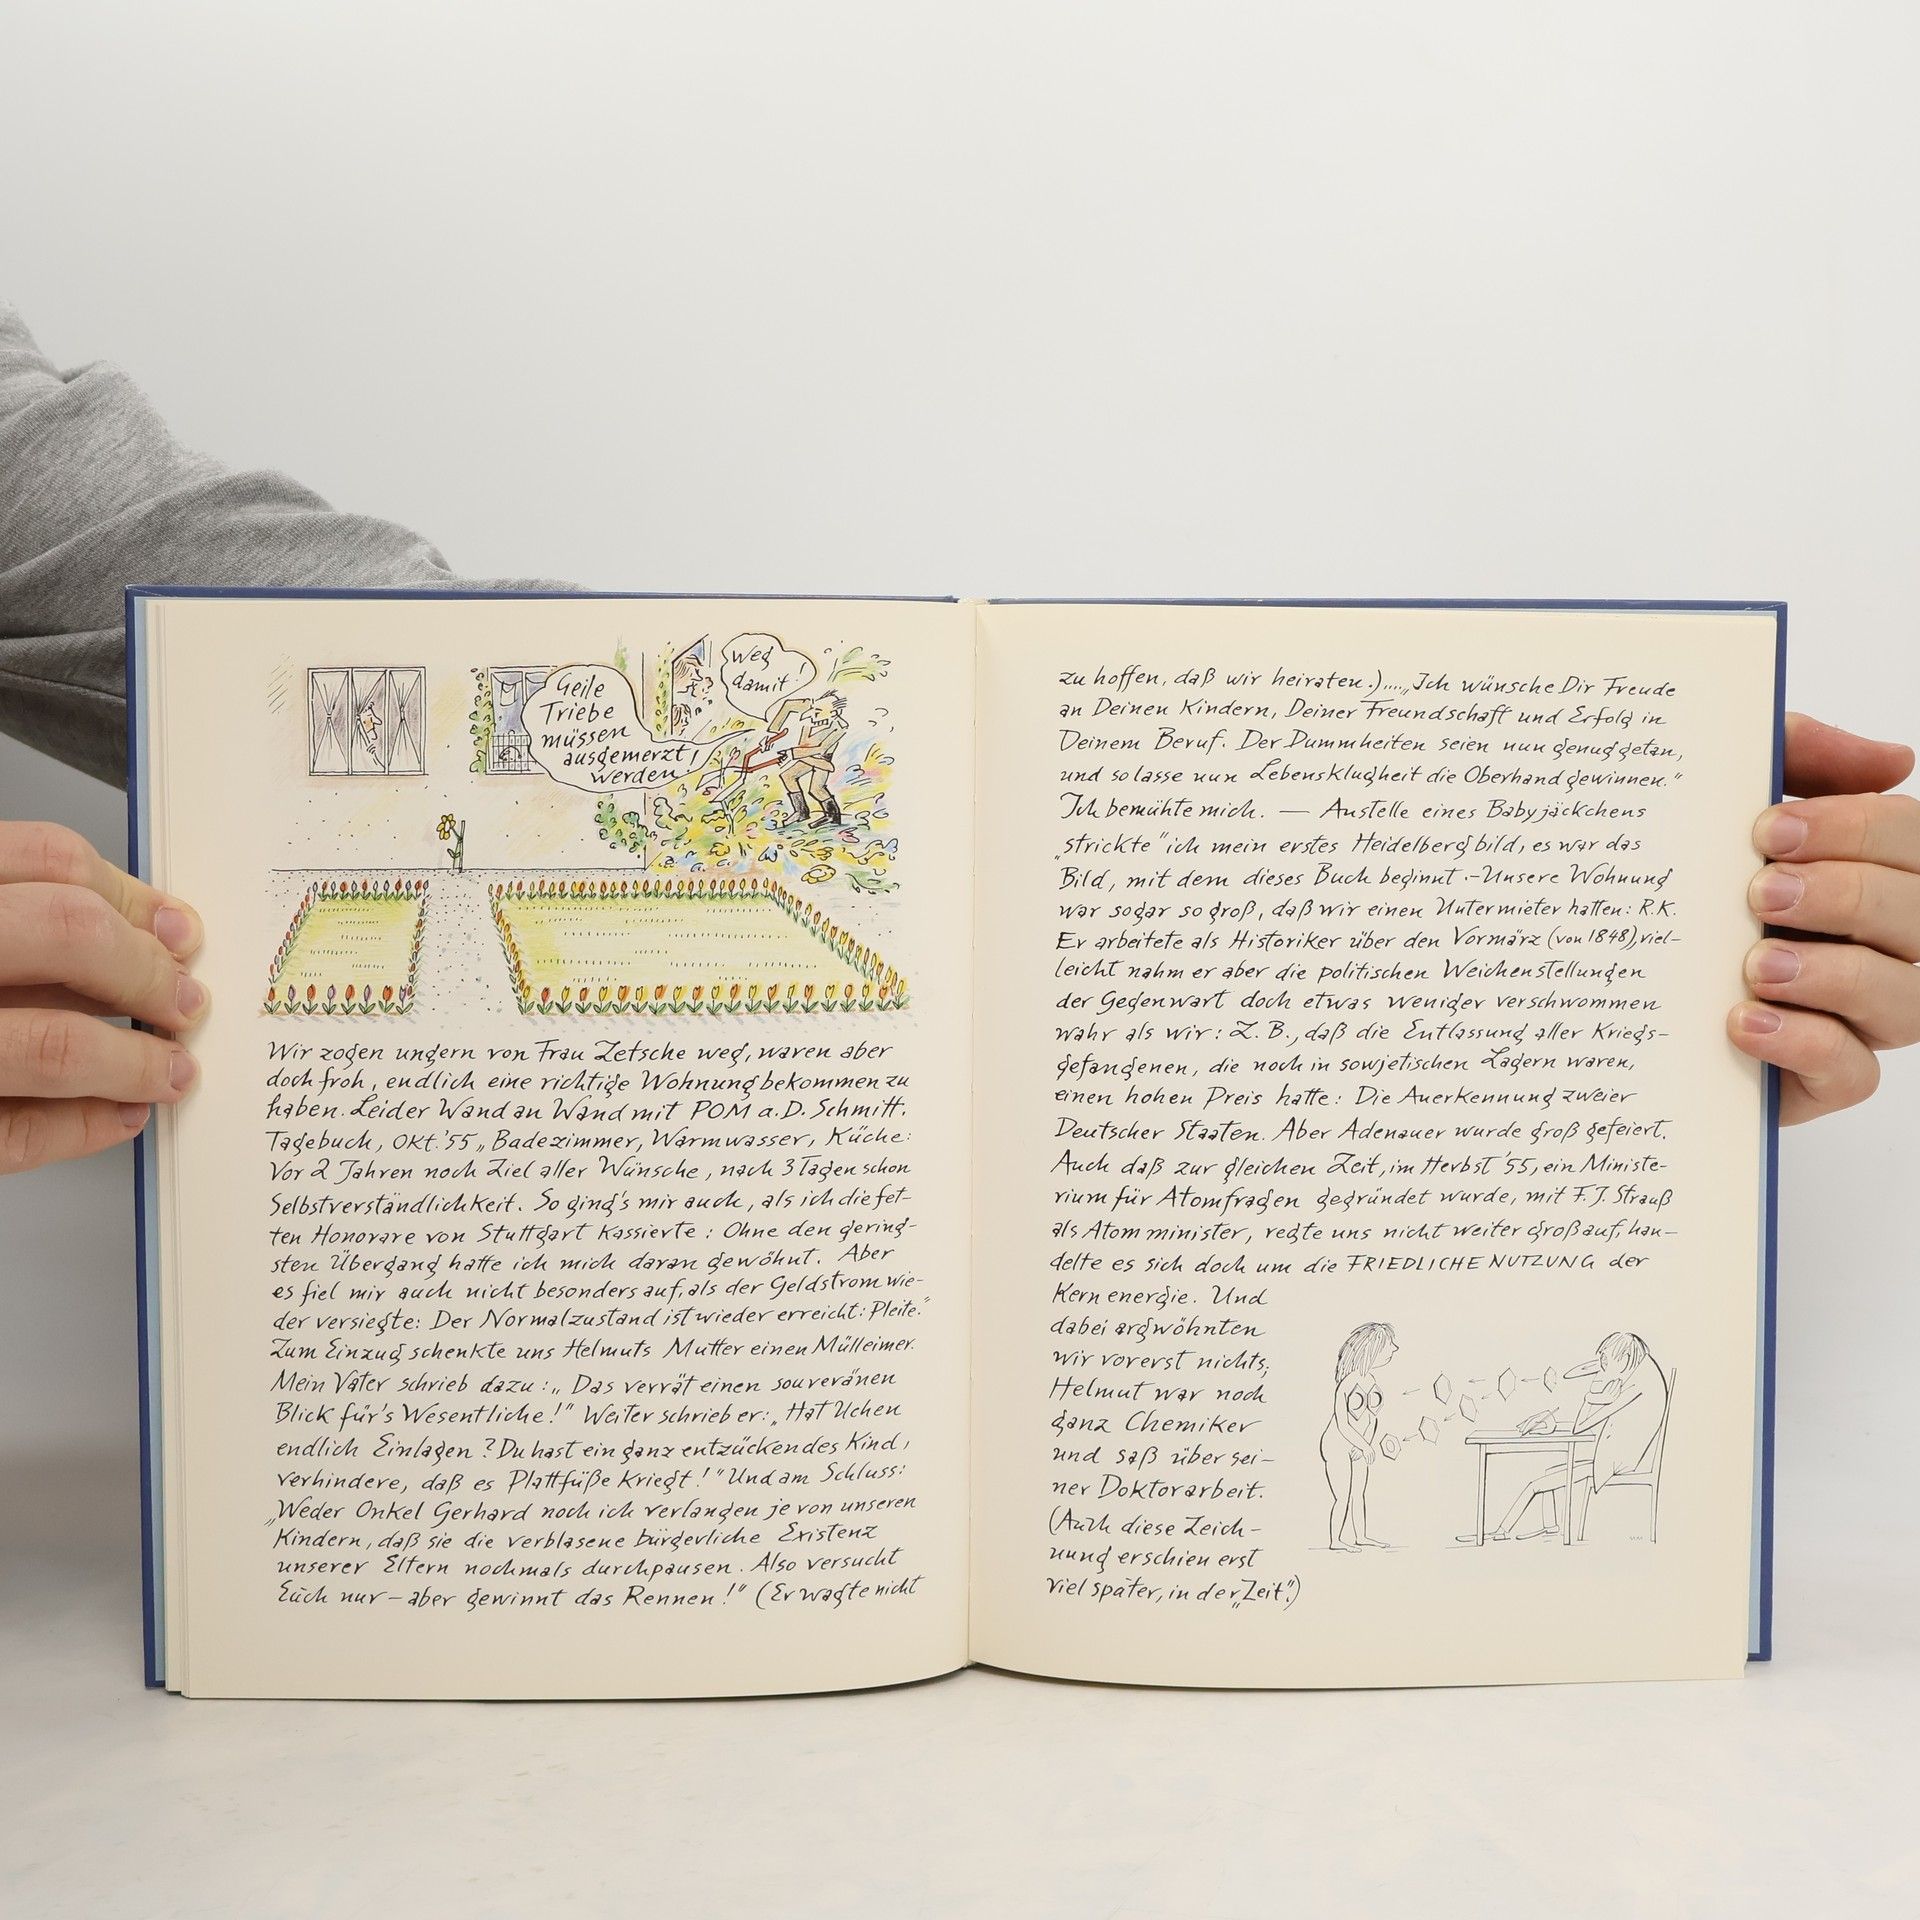 Geile
Triebe
müssen
ausgemerzt
werden!
Weg
damit!
Wir zogen ungern von Frau Zetsche weg, waren aber
doch froh, endlich eine richtige Wohnung bekommen zu
haben. Leider Wand an Wand mit POM a.D. Schmitt.
Tagebuch, Okt.'55 „Badezimmer, Warmwasser, Küche:
Vor 2 Jahren noch Ziel aller Wünsche, nach 3 Tagen schon
Selbstverständlichkeit. So ging's mir auch, als ich die fet-
ten Honorare von Stuttgart kassierte: Ohne den gering-
sten Übergang hatte ich mich daran gewöhnt. Aber
es fiel mir auch nicht besonders auf, als der Geldstrom wie-
der versiegte: Der Normalzustand ist wieder erreicht: Pleite."
Zum Einzug schenkte uns Helmuts Mutter einen Mülleimer.
Mein Vater schrieb dazu: „Das verrät einen souveränen
Blick für's Wesentliche!" Weiter schrieb er: „Hat Uchen
endlich Einlagen? Du hast ein ganz entzückendes Kind,
verhindere, daß es Plattfüße kriegt!" Und am Schluss:
„Weder Onkel Gerhard noch ich verlangen je von unseren
Kindern, daß sie die verblasene bürgerliche Existenz
unserer Eltern nochmals durchpausen. Also versucht
Euch nur – aber gewinnt das Rennen!" (Er wagte nicht
zu hoffen, daß wir heiraten.)....„Ich wünsche Dir Freude
an Deinen Kindern, Deiner Freundschaft und Erfolg in
Deinem Beruf. Der Dummheiten seien nun genug getan,
und so lasse nun Lebensklugheit die Oberhand gewinnen."
Ich bemühte mich. — Anstelle eines Babyjäckchens
„strickte" ich mein erstes Heidelbergbild, es war das
Bild, mit dem dieses Buch beginnt.–Unsere Wohnung
war sogar so groß, daß wir einen Untermieter hatten: R.K.
Er arbeitete als Historiker über den Vormärz (von 1848), viel-
leicht nahm er aber die politischen Weichenstellungen
der Gegenwart doch etwas weniger verschwommen
wahr als wir: Z.B., daß die Entlassung aller Kriegs-
gefangenen, die noch in sowjetischen Lagern waren,
einen hohen Preis hatte: Die Anerkennung zweier
Deutscher Staaten. Aber Adenauer wurde groß gefeiert.
Auch daß zur gleichen Zeit, im Herbst '55, ein Ministe-
rium für Atomfragen gegründet wurde, mit F.J. Strauß
als Atomminister, regte uns nicht weiter groß auf, han-
delte es sich doch um die FRIEDLICHE NUTZUNG der
Kernenergie. Und
dabei argwöhnten
wir vorerst nichts;
Helmut war noch
ganz Chemiker
und saß über sei-
ner Doktorarbeit.
(Auch diese Zeich-
nung erschien erst
viel später, in der „Zeit".)